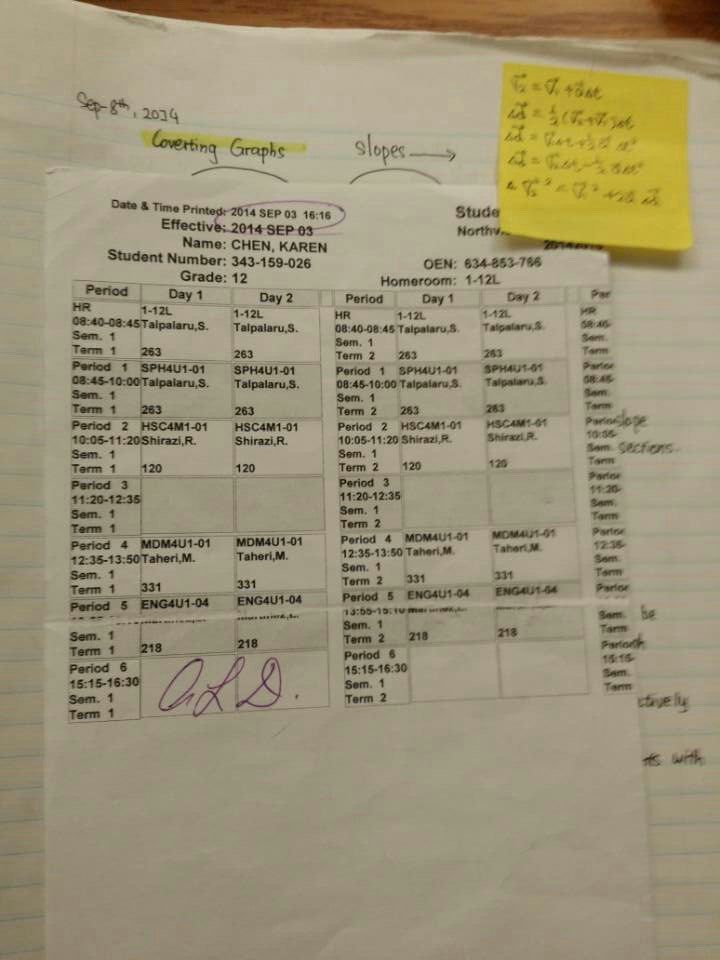 Sep-8th, 2014
Coverting Graphs
slopes
Date & Time Printed: 2014 SEP 03 16:16
Effective: 2014 SEP 03
Name: CHEN, KAREN
Student Number: 343-159-026
Grade: 12
Stude
Northv
OEN: 634-853-766
Homeroom: 1-12L
Period Day 1 Day 2 Period Day 1 Day 2 Per
HR 1-12L 1-12L HR 1-12L 1-12L HR
08:40-08:45 Talpalaru,S. Talpalaru,S. 08:40-08:45 Talpalaru,S. Talpalaru,S. 08:40-
Sem. 1 Sem. 1 Sem.
Term 1 263 263 Term 2 263 263 Term
Period 1 SPH4U1-01 SPH4U1-01 Period 1 SPH4U1-01 SPH4U1-01 Period
08:45-10:00 Talpalaru,S. Talpalaru,S. 08:45-10:00 Talpalaru,S. Talpalaru,S. 08:45-
Sem. 1 Sem. 1 Sem.
Term 1 263 263 Term 2 263 263 Term
Period 2 HSC4M1-01 HSC4M1-01 Period 2 HSC4M1-01 HSC4M1-01 Period slope
10:05-11:20 Shirazi,R. Shirazi,R. 10:05-11:20 Shirazi,R. Shirazi,R. 10:05-
Sem. 1 Sem. 1 Sem. sections.
Term 1 120 120 Term 2 120 120 Term
Period 3 Period 3 Period
11:20-12:35 11:20-12:35 11:20-
Sem. 1 Sem. 1 Sem.
Term 1 Term 2 Term
Period 4 MDM4U1-01 MDM4U1-01 Period 4 MDM4U1-01 MDM4U1-01 Period
12:35-13:50 Taheri,M. Taheri,M. 12:35-13:50 Taheri,M. Taheri,M. 12:35-
Sem. 1 Sem. 1 Sem.
Term 1 331 331 Term 2 331 331 Term
Period 5 ENG4U1-04 ENG4U1-04 Period 5 ENG4U1-04 ENG4U1-04 Period
Sem. 1 Sem. 1 Sem. be
Term 1 218 218 Term 2 218 218 Term
Period 6 Period 6 Period
15:15-16:30 15:15-16:30 15:15-
Sem. 1 Sem. 1 Sem.
Term 1 Term 2 Term
ctively
ts with